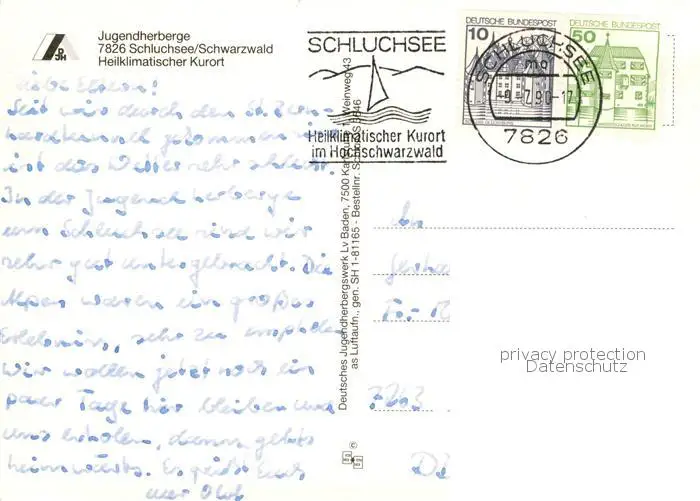 Jugendherberge
7826 Schluchsee/Schwarzwald
Heilklimatischer Kurort
DJH
SCHLUCHSEE
Heilklimatischer Kurort
im Hochschwarzwald
DEUTSCHE BUNDESPOST
10
DEUTSCHE BUNDESPOST
50
SCHLUCHSEE
mo
7.90-17
7826
Liebe Eltern!
Seit wir durch den St. Bern-
hardtunnel gekommen
ist das Wetter sehr schlecht.
In der Jugendherberge
am Schluchsee sind wir
sehr gut untergebracht. Die
Alpen waren ein großes
Erlebnis, sehr zu
Wir wollen jetzt noch ein
paar Tage hier bleiben und
uns erholen, dann gehts
heimwärts. Es grüßt Euch
Deutsches Jugendherbergswerk Lv Baden, 7500 Karlsruhe, Weinweg 43
as Luftaufn., gen. SH 1-81165 - Bestellnr.
An
privacy protection
Datenschutz